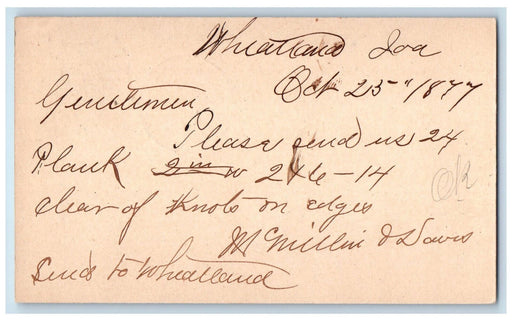 Wheatland Ioa
Oct 25" 1877
Gentlemen
Please send us 24
Plank 2 in 2x6-14
clear of Knots on edges
OK
McMillin & Davis
Send to Wheatland